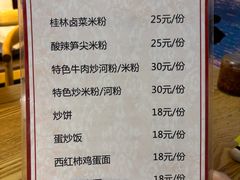 桂林卤菜米粉 25元/份
酸辣笋尖米粉 25元/份
特色牛肉炒河粉/米粉 30元/份
特色炒米粉/河粉 30元/份
炒饼 18元/份
蛋炒饭 18元/份
西红柿鸡蛋面 18元/份
18元/份